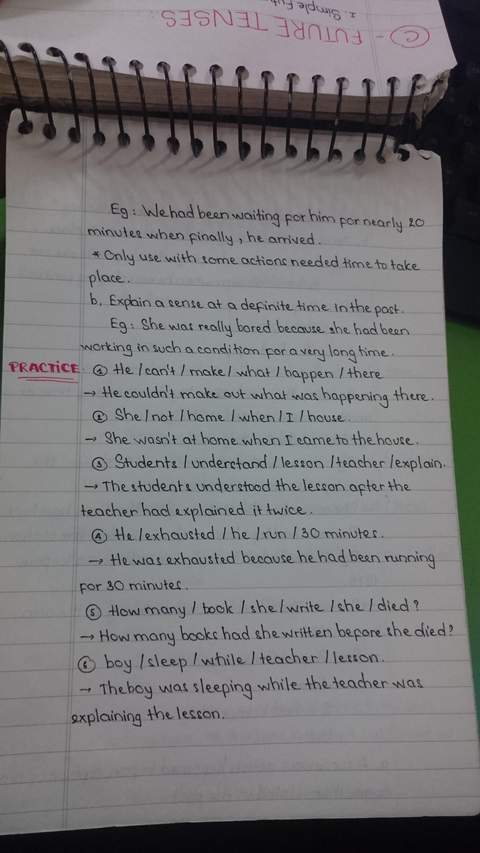 2. Simple Fut
C - FUTURE TENSES
Eg: We had been waiting for him for nearly 20
minutes when finally, he arrived.
* Only use with some actions needed time to take
place.
b. Explain a sense at a definite time in the past.
Eg: She was really bored because she had been
working in such a condition for a very long time.
PRACTICE: 1 He / can't / make / what / happen / there
→ He couldn't make out what was happening there.
2 She / not / home / when / I / house.
→ She wasn't at home when I came to the house.
3 Students / understand / lesson / teacher / explain.
→ The students understood the lesson after the
teacher had explained it twice.
4 He / exhausted / he / run / 30 minutes.
→ He was exhausted because he had been running
for 30 minutes.
5 How many / book / she / write / she / died?
→ How many books had she written before she died?
6 boy / sleep / while / teacher / lesson.
→ The boy was sleeping while the teacher was
explaining the lesson.